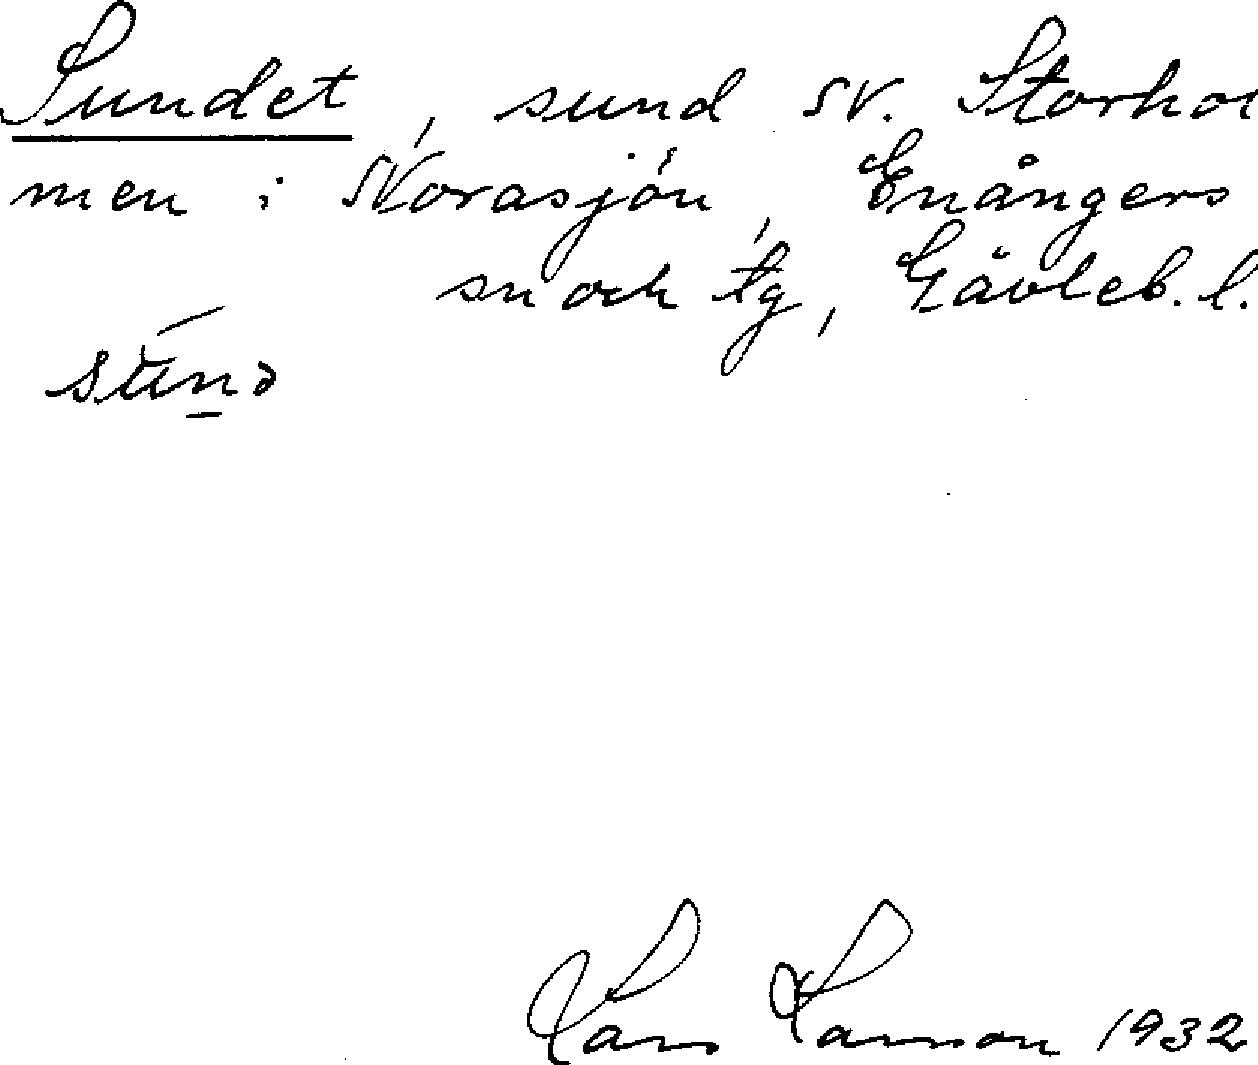 Sundet, sund sv. Storhol
men i Norasjön, Enångers
sn och tg, Gävleb. l.
sund
Lars Larsson 1932